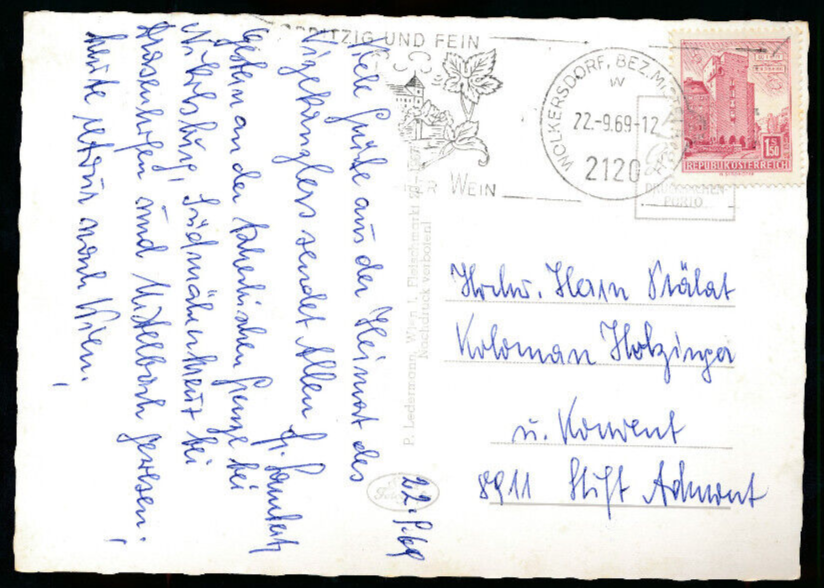 SPRITZIG UND FEIN
ER WEIN
WOLKERSDORF, BEZ. MI
W
22.-9.69-12
2120
1.50
REPUBLIK ÖSTERREICH
DRUCKSACHEN
PORTO
22.9.69
Viele Grüße aus der Heimat des
Vizekanzlers sendet Allen Fr.
Gestern an der tschechischen Grenze bei
Nikolsburg, Südmährerkreuz bei
Drasenhofen und Mistelbach gewesen,
heute retour nach Wien.
P. Ledermann, Wien I, Fleischmarkt
Nachdruck verboten!
Hochw. Herrn Stiftsrat
Koloman Holzinger
u. Konvent
8911 Stift Admont